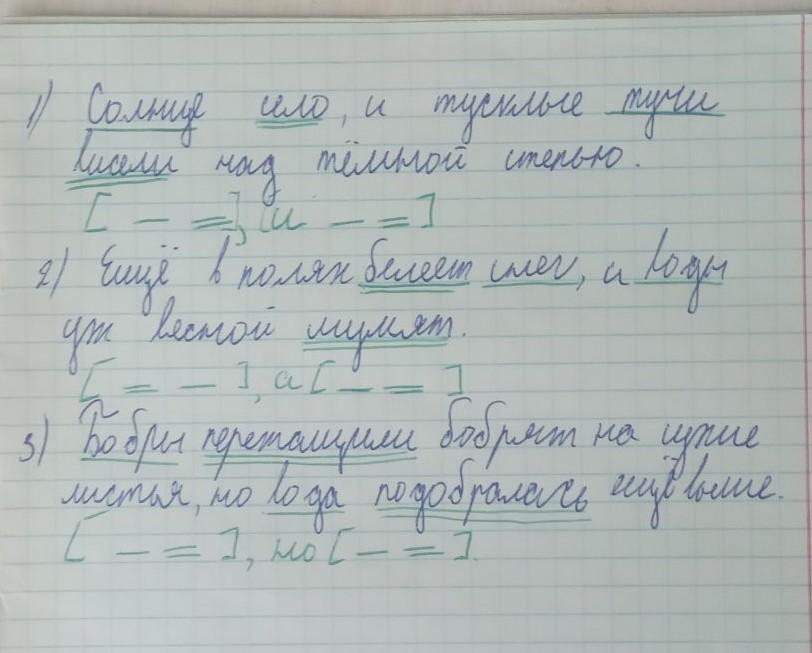 1) Солнце село, и тусклые тучи
висели над тёмной степью.
[ — = ], [и — = ]
2) Ещё в полях белеет снег, а воды
уж весной шумят.
[ = — ], а [ — = ]
3) Бобры перетащили бобрят на сухие
листья, но вода подобралась ещё выше.
[ — = ], но [ — = ].